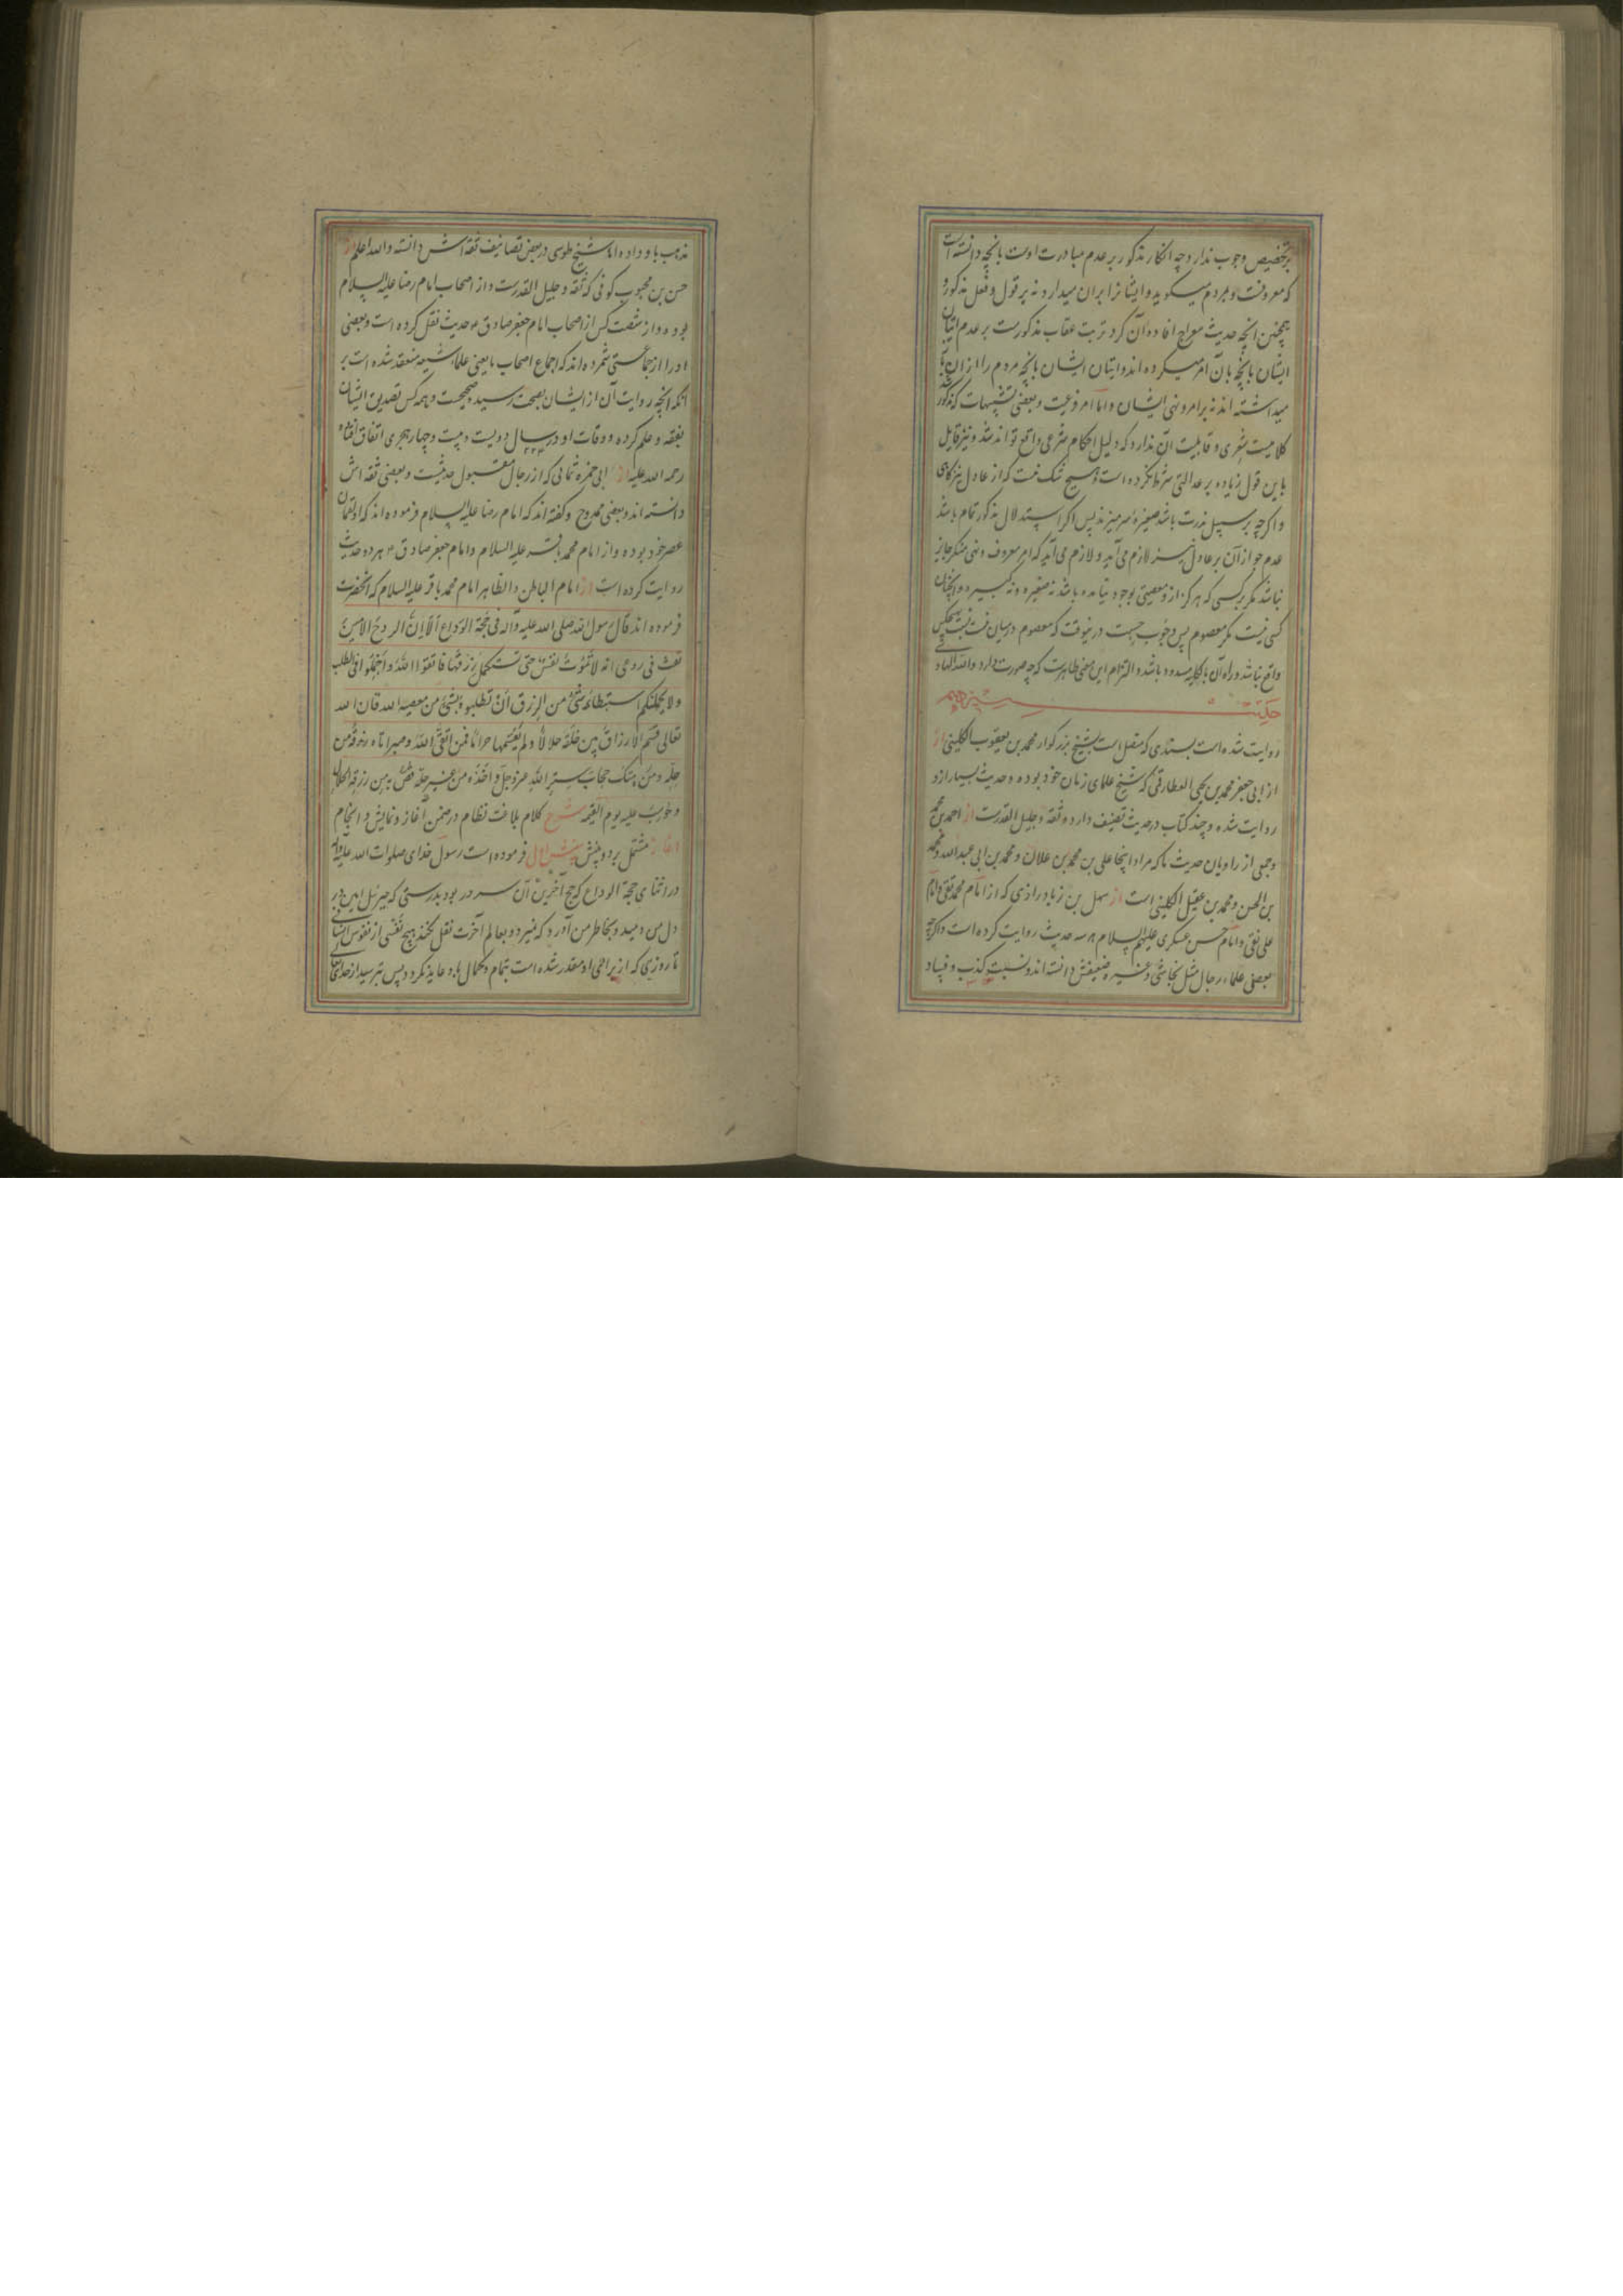 بر تخصیص وجوب ندارد چه انکار مذکور بر عدم مبادرت اوست بانچه دانسته است
که معروفست و بمردم میگوید و ایشانرا بران میدارد نه بر قول و فعل مذکور و
همچنین انچه حدیث معراج افاده آن کرد ترتب عقاب مذکورست بر عدم اتیان
ایشان بانچه بان امر میکرده اند و اتیان ایشان بانچه مردم را ازان باز
میداشته اند نه بر امر و نهی ایشان و اما امر فرعیت و بعضی تشبیهات که مذکور شد
کلامیست شعری و قابلیت آن ندارد که دلیل احکام شرعی واقع تواند شد و نیز قایل
باین قول زیاده بر عدالتی شرط نکرده است و هیچ شک نیست که از عادل نیز گاهی
و اگرچه بر سبیل ندرت باشد صغیره سر میزند پس اگر استدلال مذکور تمام باشد
عدم جواز آن بر عادل نیز لازم می آید و لازم می آید که امر معروف و نهی منکر جایز
نباشد مگر بر کسی که هرگز ازو معصیتی بوجود نیامده باشد نه صغیره و نه کبیره و انچنان
کسی نیست مگر معصوم پس وجوب حسبت درینوقت که معصوم در میان نیست بر هیچکس
واقع نباشد و راه آن بالکلیه مسدود باشد و التزام این معنی ظاهرست که چه صورت دارد والله الهادی
حدیث سیزدهم
روایت شده است بسندی که متصل است بشیخ بزرگوار محمد بن یعقوب الکلینی از
از ابی جعفر محمد بن یحیی العطار قمی که شیخ علمای زمان خود بوده و حدیث بسیار ازو
روایت شده و چند کتاب در حدیث تصنیف دارد و ثقه و جلیل القدرست از احمد بن محمد
و جمعی از راویان حدیث ما که مراد اینجا علی بن محمد بن علان و محمد بن ابی عبدالله و محمد
بن الحسن و محمد بن عقیل الکلینی است از سهل بن زیاد رازی که از امام محمد تقی و امام
علی نقی و امام حسن عسکری علیهم السلام هر سه حدیث روایت کرده است و اگرچه
بعضی علماء رجال مثل نجاشی و غیره ضعیفش دانسته اند و نسبت کذب و فساد
مذهب باو داده اما شیخ طوسی در بعض تصانیف ثقه اش دانسته والله اعلم از
حسن بن محبوب کوفی که ثقه و جلیل القدرست و از اصحاب امام رضا علیه السلام
بوده و از شصت کس از اصحاب امام جعفر صادق ع حدیث نقل کرده است و بعضی
او را از جماعتی شمرده اند که اجماع اصحاب ما یعنی علماء شیعه منعقد شده است بر
آنکه انچه روایت آن از ایشان بصحت رسید صحیحست و همه کس تصدیق ایشان
بفقه و علم کرده و وفات او در سال دویست و بیست و چهار هجری اتفاق افتاده ۲۲۴
رحمه الله علیه از ابی حمزه ثمالی که از رجال مقبول حدیثست و بعضی ثقه اش
دانسته اند و بعضی ممدوح و گفته اند که امام رضا علیه السلام فرموده اند که او لقمان
عصر خود بوده و از امام محمد باقر علیه السلام و امام جعفر صادق ع هر دو حدیث
روایت کرده است از امام الباطن و الظاهر امام محمد باقر علیه السلام که آنحضرت
فرموده اند قال رسول الله صلی الله علیه و اله فی حجة الوداع الا ان الروح الامین
نفث فی روعی انه لا تموت نفس حتی تستکمل رزقها فاتقوا الله و اجملوا فی الطلب
و لا یحملنکم استبطاء شئ من الرزق ان تطلبوه بشئ من معصیة الله فان الله
تعالی قسم الارزاق بین خلقه حلالا و لم یقسمها حراما فمن اتقی الله و صبر اتاه رزقه من
حله و من هتک حجاب ستر الله عز و جل و اخذه من غیر حله قص به من رزقه الحلال
و حوسب علیه یوم القیمه شرح کلام بلاغت نظام در ضمن آغاز و نمایش و انجام
آغاز مشتمل بر دو بخش بخش اول فرموده است رسول خدای صلوات الله علیه و آله
در اثنای حجة الوداع که حج آخرین آن سرور بود بدرستی که جبرئیل امین در
دل من دمید و بخاطر من آورد که نمیرد و بعالم آخرت نقل نکند هیچ نفسی از نفوس انسانی
تا روزی که از برای او مقدر شده است بتمام و کمال باو عاید نگردد پس بترسید از خدای تعالی